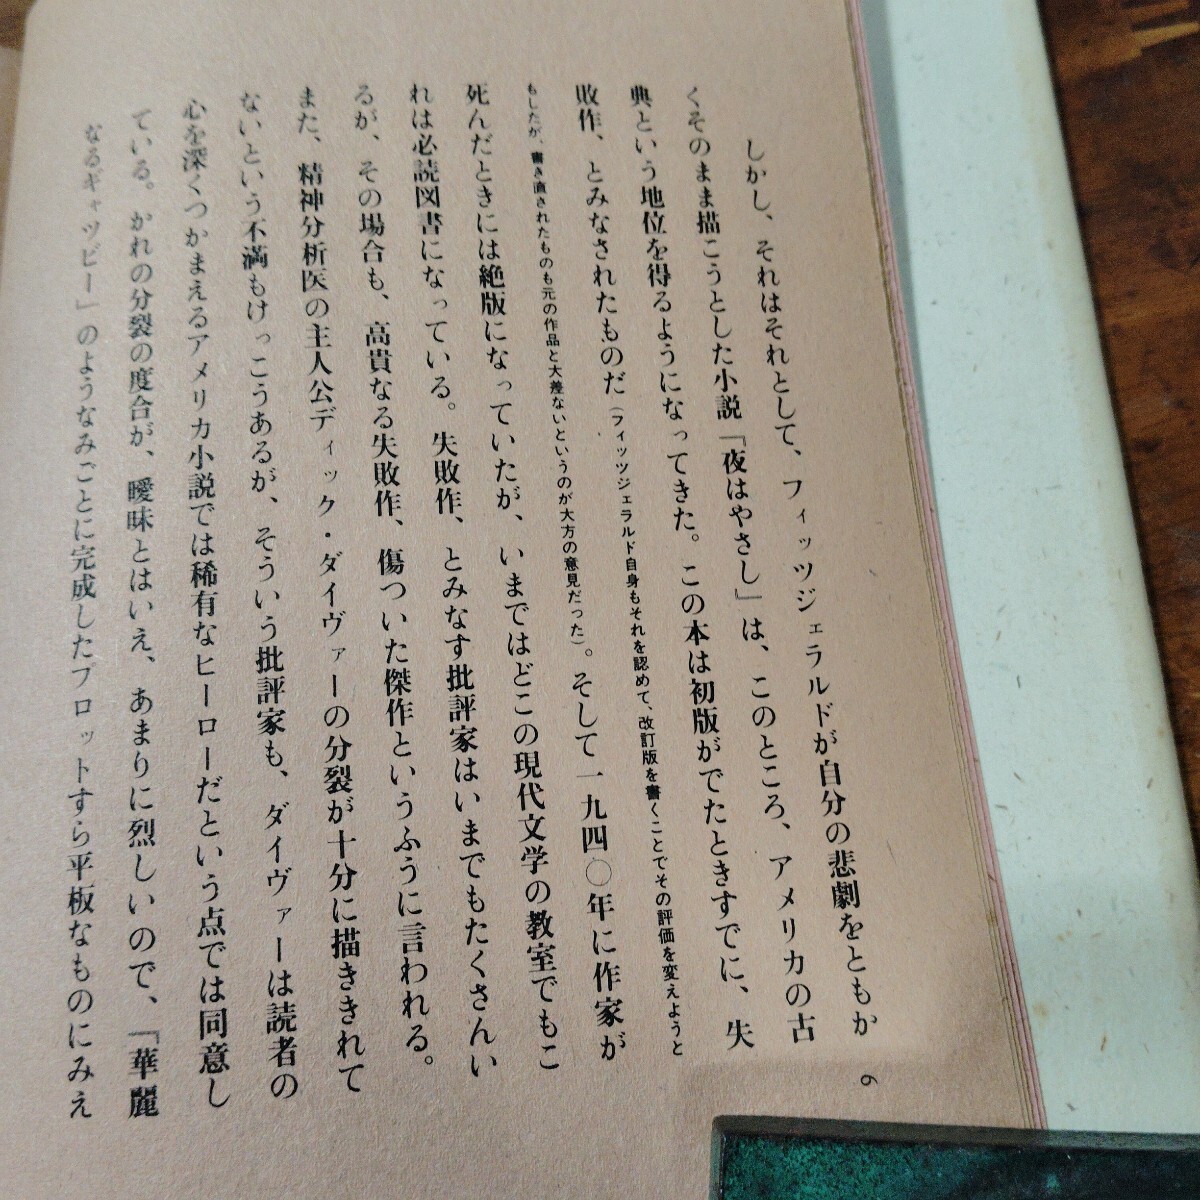 しかし、それはそれとして、フィッツジェラルドが自分の悲劇をともか
くそのまま描こうとした小説「夜はやさし」は、このところ、アメリカの古
典という地位を得るようになってきた。この本は初版がでたときすでに、失
敗作、とみなされたものだ（フィッツジェラルド自身もそれを認めて、改訂版を書くことでその評価を変えようと
もしたが、書き直されたものも元の作品と大差ないというのが大方の意見だった）。そして一九四〇年に作家が
死んだときには絶版になっていたが、いまではどこの現代文学の教室でもこ
れは必読図書になっている。失敗作、とみなす批評家はいまでもたくさんい
るが、その場合も、高貴なる失敗作、傷ついた傑作というふうに言われる。
また、精神分析医の主人公ディック・ダイヴァーの分裂が十分に描ききれて
ないという不満もけっこうあるが、そういう批評家も、ダイヴァーは読者の
心を深くつかまえるアメリカ小説では稀有なヒーローだという点では同意し
ている。かれの分裂の度合が、曖昧とはいえ、あまりに烈しいので、「華麗
なるギャツビー」のようなみごとに完成したプロットすら平板なものにみえ
の